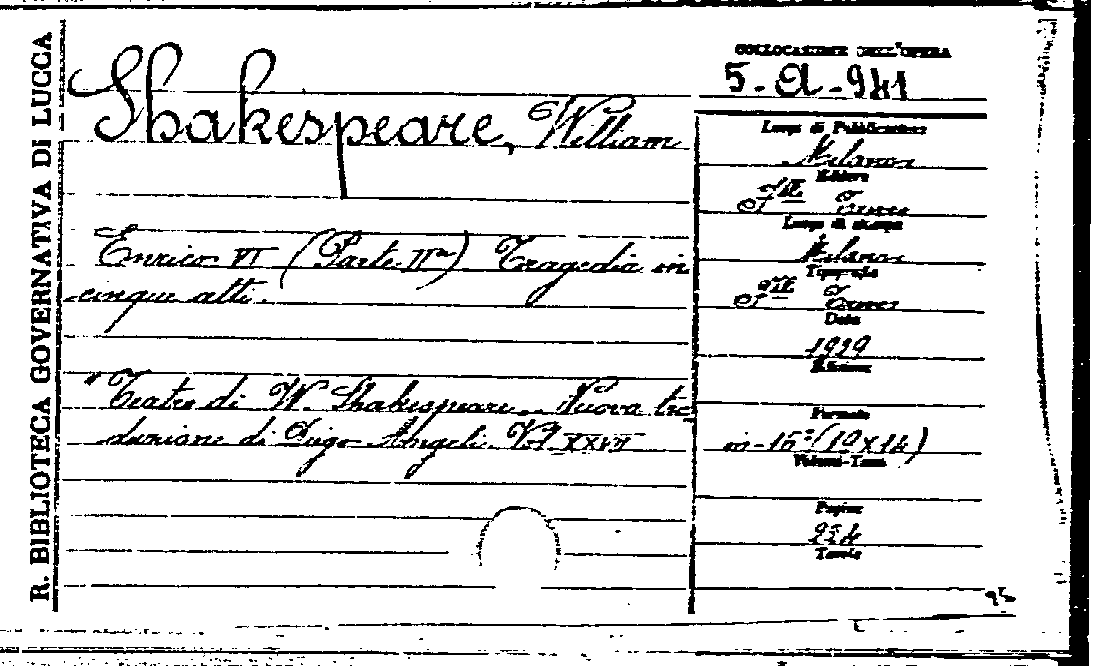 R. BIBLIOTECA GOVERNATIVA DI LUCCA
Shakespeare, William
Enrico VI (Parte IIª) Tragedia in
cinque atti.
"Teatro di W. Shakespeare. Nuova tra
duzione di Diego Angeli. Vol. XXVII
COLLOCAZIONE DELL'OPERA
5-A-941
Luogo di Pubblicazione
Milano
Editore
F.lli Treves
Luogo di stampa
Milano
Tipografia
F.lli Treves
Data
1929
Edizione
Formato
in-16º (19x12)
Volumi-Tomi
Pagine
224
Tavole